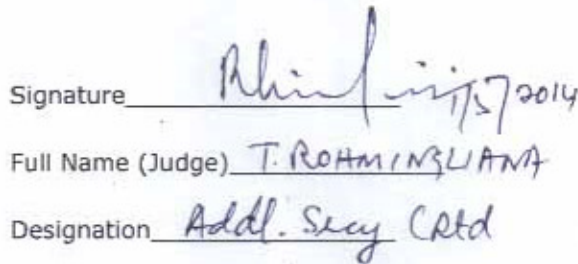 Signature 1/5/2014
Full Name (Judge) T. ROHMINGLIANA
Designation Addl. Secy (Rtd